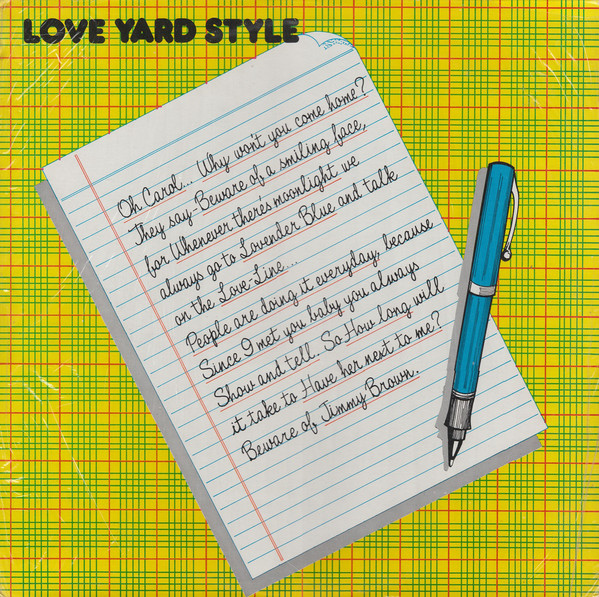 LOVE YARD STYLE
Oh Carol... Why won't you come home?
They say-Beware of a smiling face,
for Whenever there's moonlight we
always go to Lovender Blue and talk
on the Love-Line...
People are doing it everyday, because
Since I met you baby you always
Show and tell. So How long will
it take to Have her next to me?
Beware of Jimmy Brown.